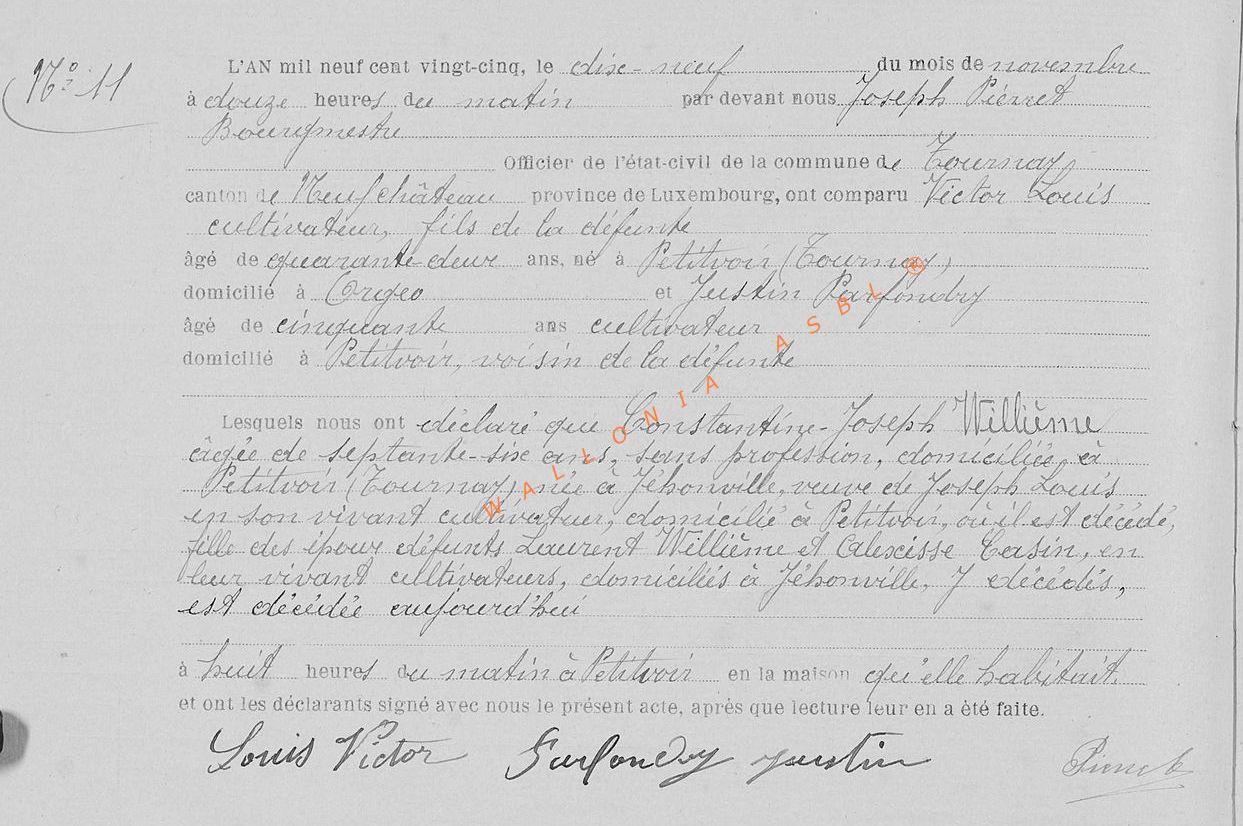 Nº 11
L'AN mil neuf cent vingt-cinq, le dix-neuf du mois de novembre
à douze heures du matin par devant nous Joseph Pierret
Bourgmestre
Officier de l'état-civil de la commune de Tournay,
canton de Neufchâteau province de Luxembourg, ont comparu Victor Louis
cultivateur, fils de la défunte
âgé de quarante-deux ans, né à Petitvoir (Tournay)
domicilié à Orgeo et Justin Parfondry
âgé de cinquante ans cultivateur
domicilié à Petitvoir, voisin de la défunte
Lesquels nous ont déclaré que Constantine-Joseph Willième
âgée de septante-six ans, sans profession, domiciliée à
Petitvoir (Tournay) née à Jéhonville, veuve de Joseph Louis
en son vivant cultivateur, domicilié à Petitvoir, où il est décédé,
fille des époux défunts Laurent Willième et Alexisse Casin, en
leur vivant cultivateurs, domiciliés à Jéhonville, y décédés,
est décédée aujourd'hui
à huit heures du matin à Petitvoir en la maison qu'elle habitait.
et ont les déclarants signé avec nous le présent acte, après que lecture leur en a été faite.
Louis Victor Parfondry Justin Pierret
WALLONIA ASBL ®